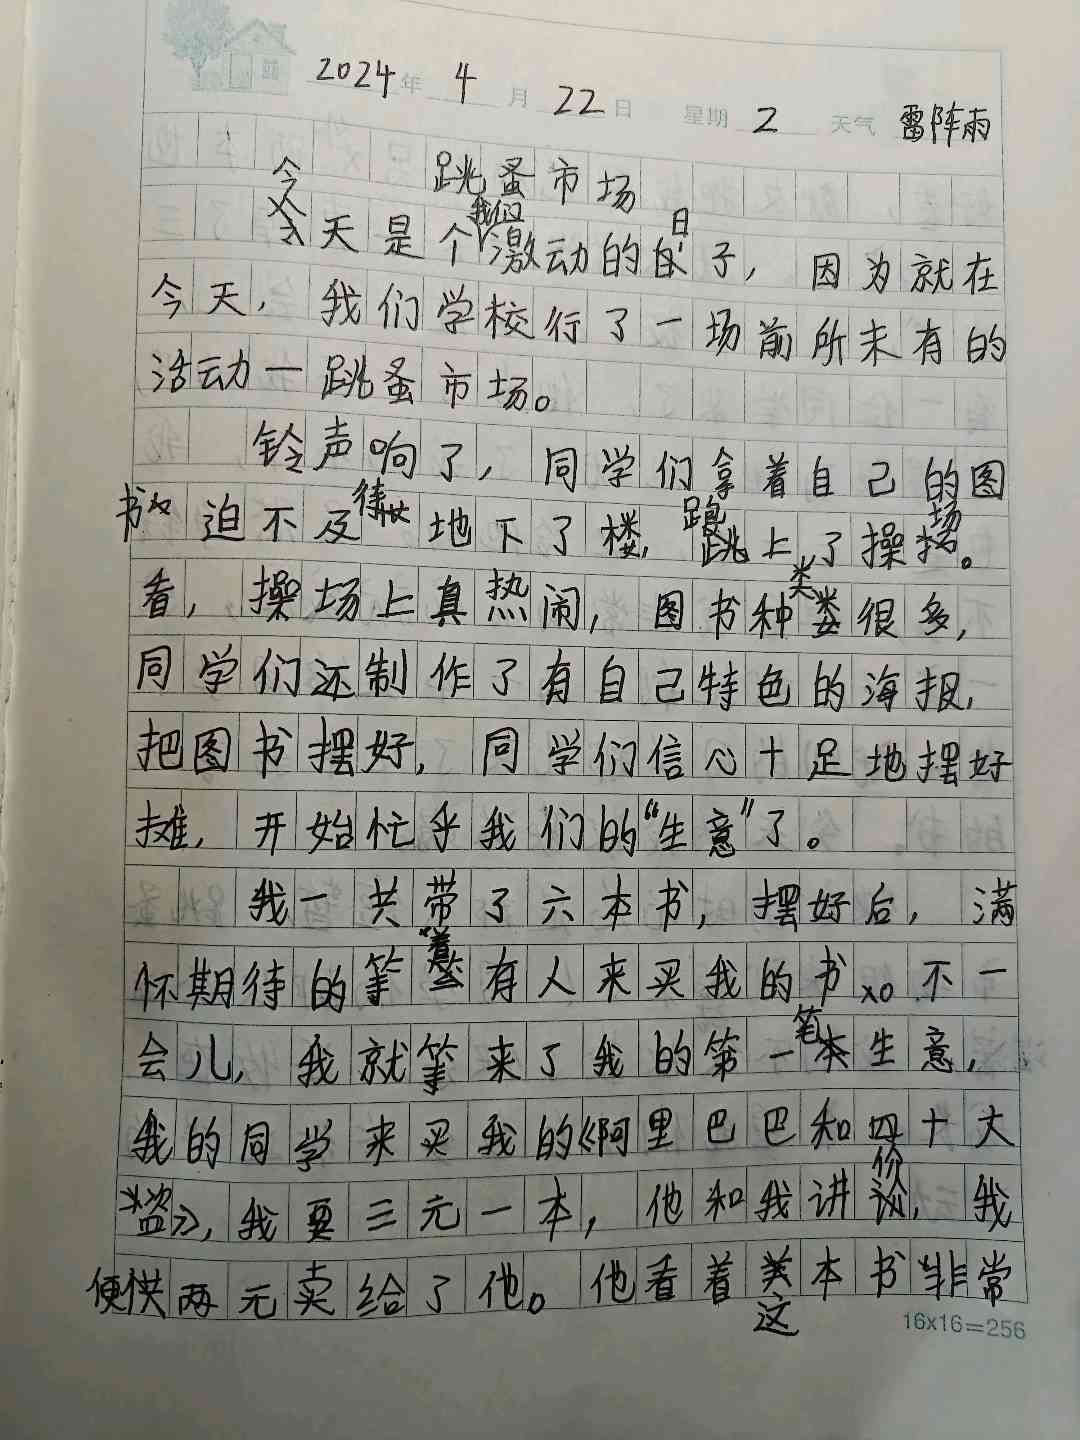 2024年 4月 22日 星期 2 天气 雷阵雨
跳蚤市场
今天是个我们激动的日子，因为就在
今天，我们学校行了一场前所未有的
活动一跳蚤市场。
铃声响了，同学们拿着自己的图
书 迫不及待地下了楼，跑上了操场。
看，操场上真热闹，图书种类很多，
同学们还制作了有自己特色的海报，
把图书摆好，同学们信心十足地摆好
摊，开始忙乎我们的“生意”了。
我一共带了六本书，摆好后，满
怀期待的等着有人来买我的书。不一
会儿，我就等来了我的第一笔生意，
我的同学来买我的《阿里巴巴和四十大
盗》，我要三元一本，他和我讲价，我
便供两元卖给了他。他看着这本书非常
16x16=256